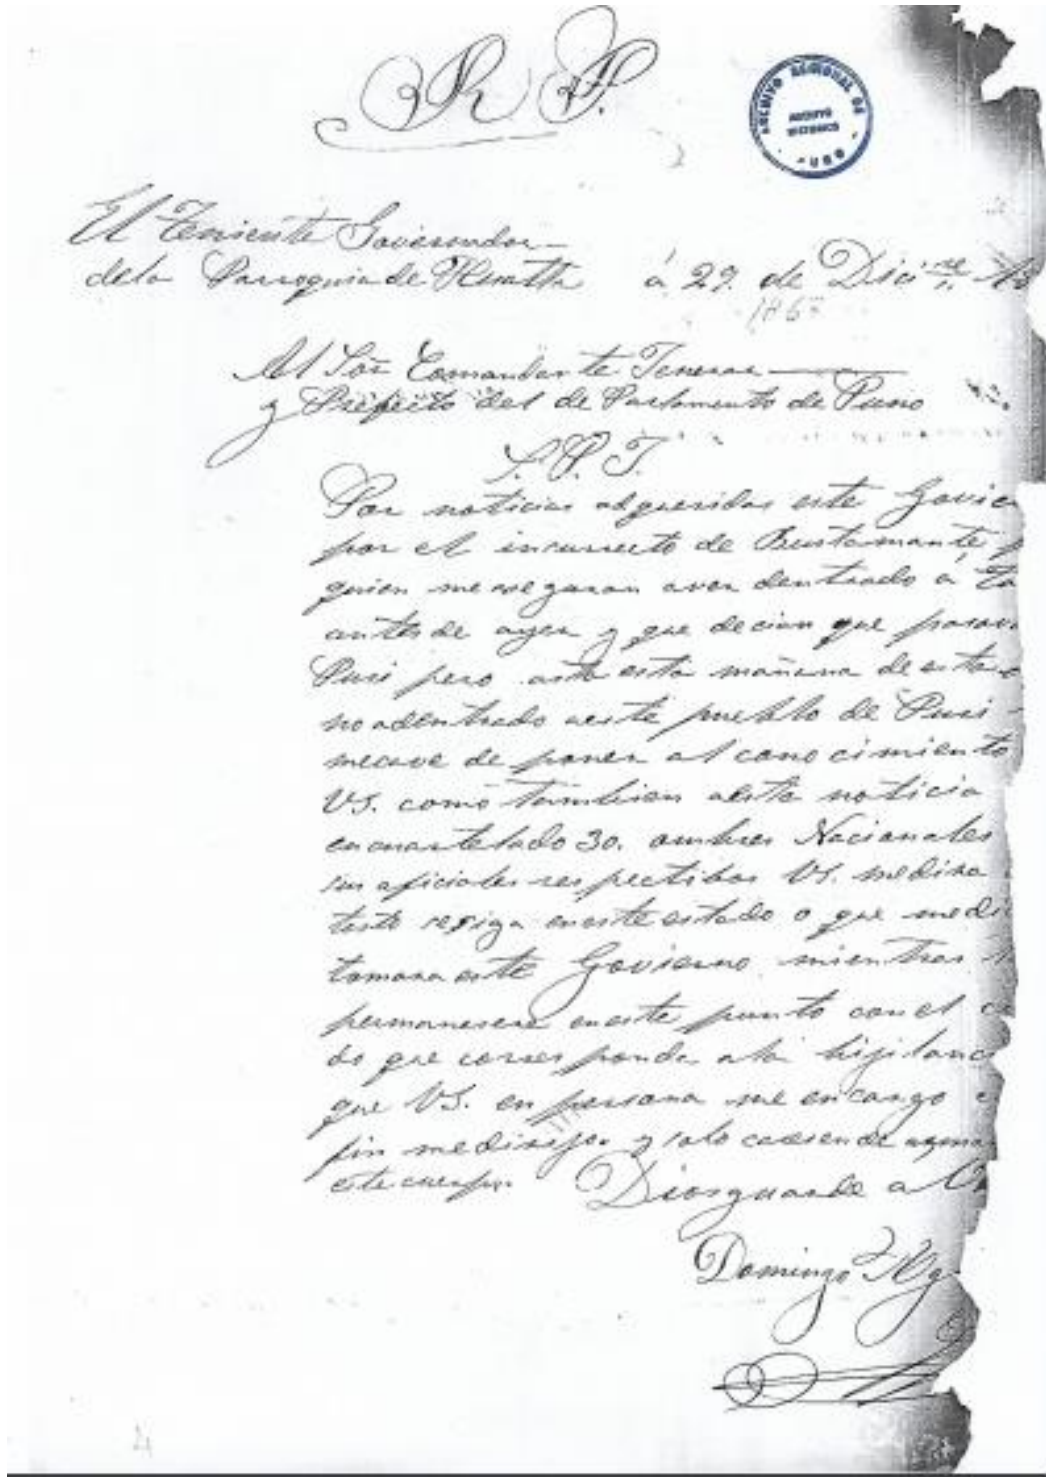 R. P.
ARCHIVO REGIONAL DE
ARCHIVO
HISTORICO
PUNO
El Teniente Governador
dela Parroquia de
á 29. de Dici re
186
Al Sor Comandante Jeneral
y Prefecto del de Partamento de Puno
S. P. J.
Por noticias adqueridas este Govie
por el incurrecto de Bustamante
quien me aseguran aver dentrado á
antes de ayer y que decian que pasava
Pusi pero asta esta mañana de
no adentrado aeste pueblo de Pusi
de poner al cono cimiento
VS. como tambien aesta noticia
encuartelado 30. ombres Nacionales
sin aficiales res pectibos VS. medira
testo eneste estado o que medi
tomara este Govierno mientras
permanesere eneste punto con el
do que corres ponda ala bijilanc
que VS. en persona me encargo
fin y solo caresende
este cuerpo. Dios guarde a
Domingo
4